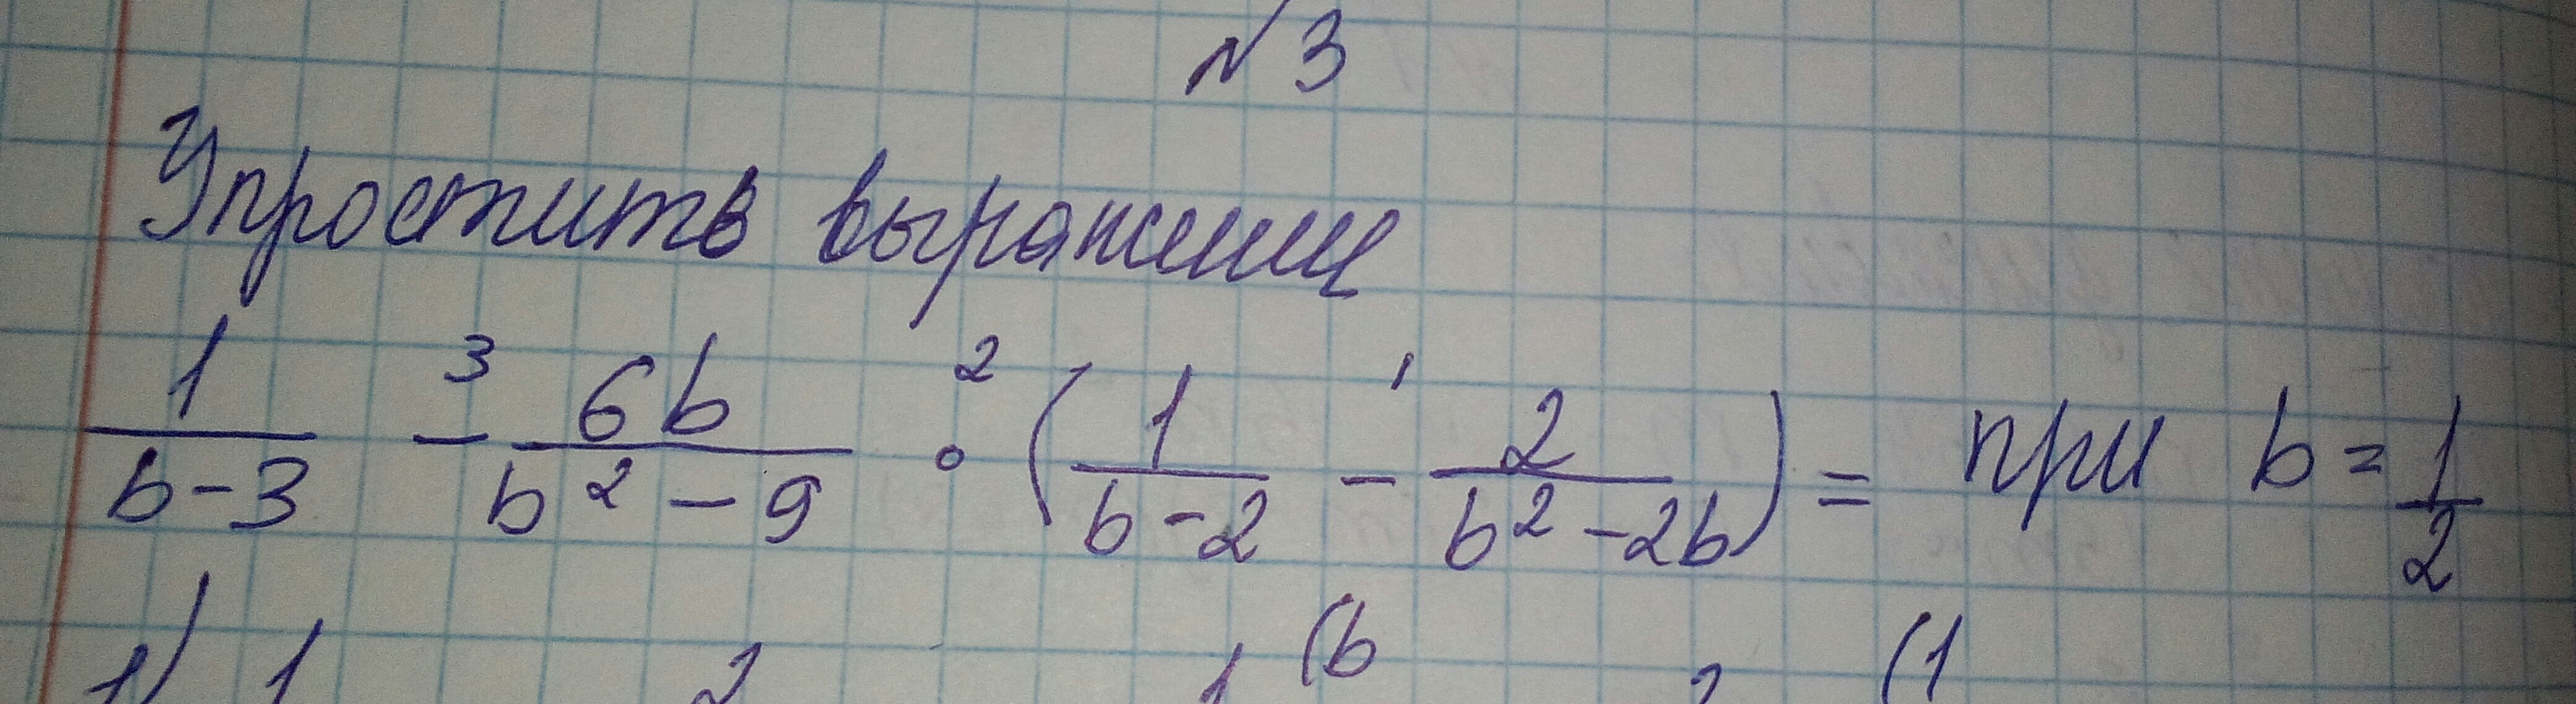 №3
Упростить выражение
1/(b-3) -³ 6b/(b²-9) ·² (1/(b-2) -¹ 2/(b²-2b)) = при b=1/2
1) 1 2 1 (b 2 (1